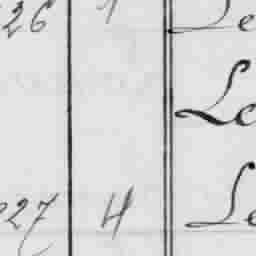 26 1 Le
Le
27 4 Le